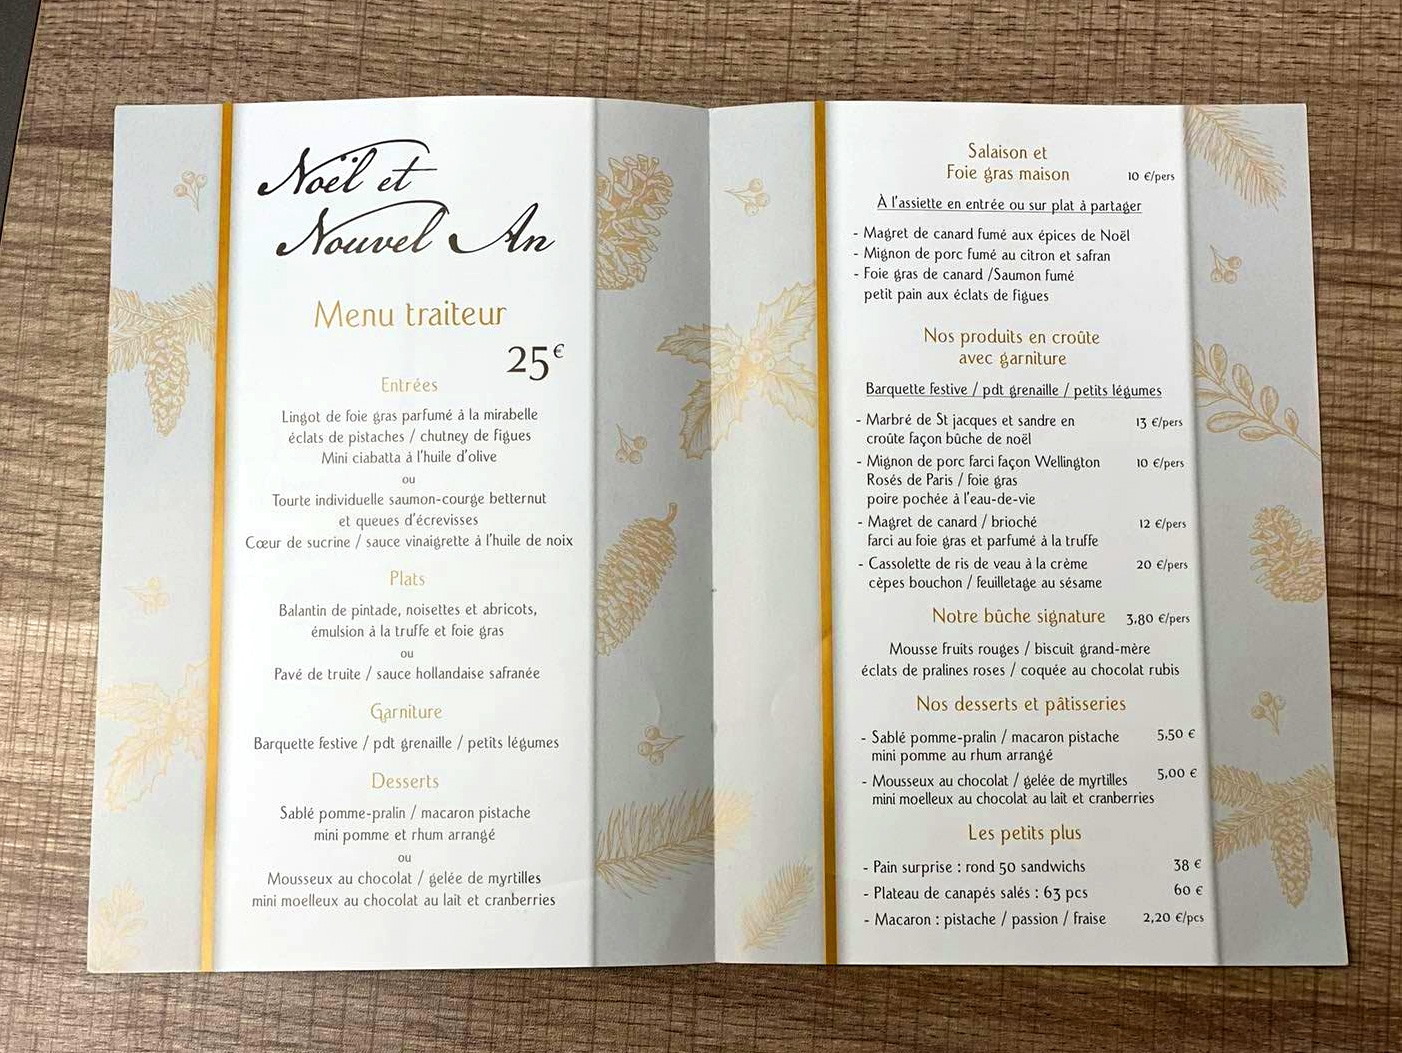 Noël et
Nouvel An
Menu traiteur
25€
Entrées
Lingot de foie gras parfumé à la mirabelle
éclats de pistaches / chutney de figues
Mini ciabatta à l'huile d'olive
ou
Tourte individuelle saumon-courge betternut
et queues d'écrevisses
Cœur de sucrine / sauce vinaigrette à l'huile de noix
Plats
Balantin de pintade, noisettes et abricots,
émulsion à la truffe et foie gras
ou
Pavé de truite / sauce hollandaise safranée
Garniture
Barquette festive / pdt grenaille / petits légumes
Desserts
Sablé pomme-pralin / macaron pistache
mini pomme et rhum arrangé
ou
Mousseux au chocolat / gelée de myrtilles
mini moelleux au chocolat au lait et cranberries
Salaison et
Foie gras maison 10 €/pers
À l'assiette en entrée ou sur plat à partager
- Magret de canard fumé aux épices de Noël
- Mignon de porc fumé au citron et safran
- Foie gras de canard /Saumon fumé
petit pain aux éclats de figues
Nos produits en croûte
avec garniture
Barquette festive / pdt grenaille / petits légumes
- Marbré de St jacques et sandre en 13 €/pers
croûte façon bûche de noël
- Mignon de porc farci façon Wellington 10 €/pers
Rosés de Paris / foie gras
poire pochée à l'eau-de-vie
- Magret de canard / brioché 12 €/pers
farci au foie gras et parfumé à la truffe
- Cassolette de ris de veau à la crème 20 €/pers
cèpes bouchon / feuilletage au sésame
Notre bûche signature 3,80 €/pers
Mousse fruits rouges / biscuit grand-mère
éclats de pralines roses / coquée au chocolat rubis
Nos desserts et pâtisseries
- Sablé pomme-pralin / macaron pistache 5,50 €
mini pomme au rhum arrangé
- Mousseux au chocolat / gelée de myrtilles 5,00 €
mini moelleux au chocolat au lait et cranberries
Les petits plus
- Pain surprise : rond 50 sandwichs 38 €
- Plateau de canapés salés : 63 pcs 60 €
- Macaron : pistache / passion / fraise 2,20 €/pcs